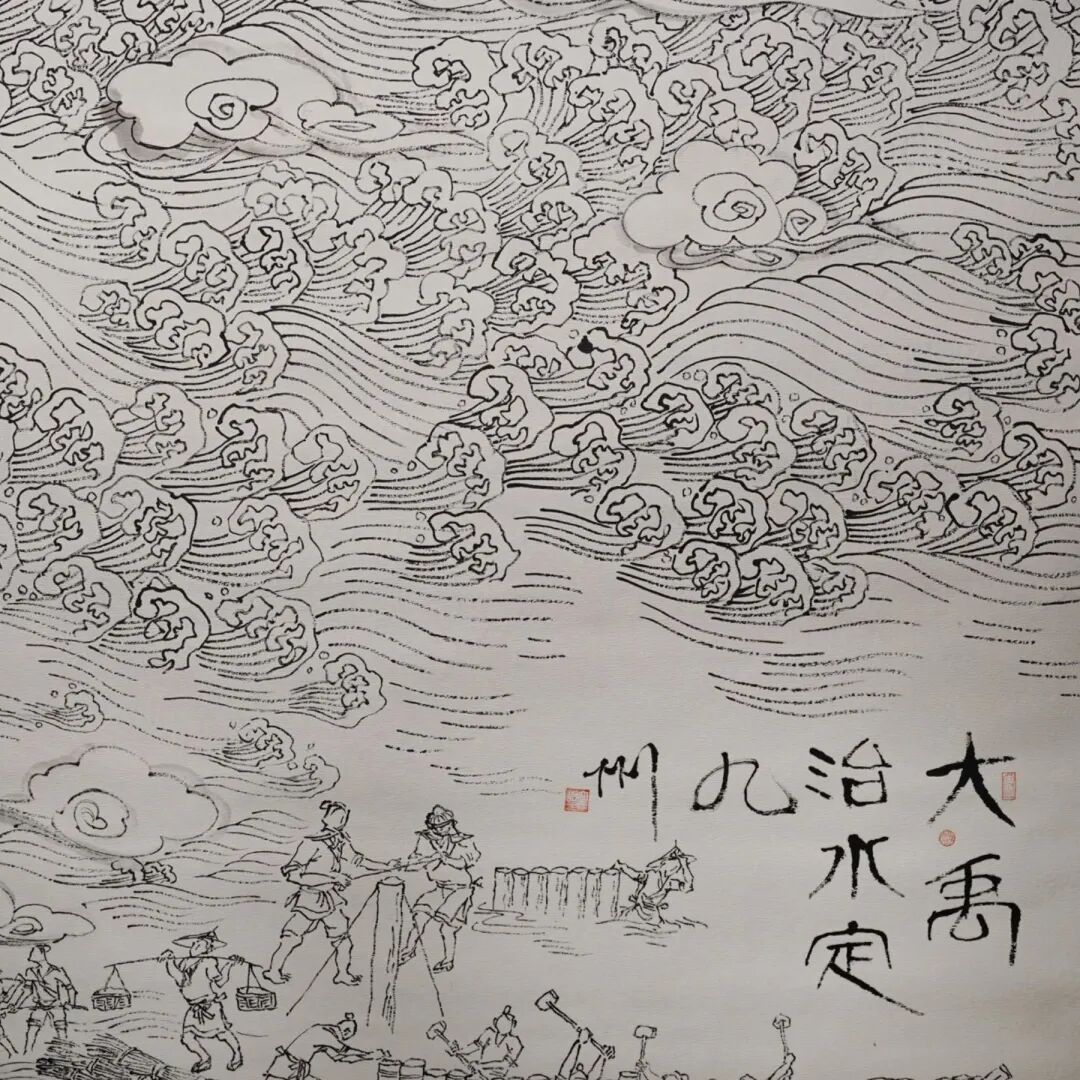 大禹
治水定
九
州